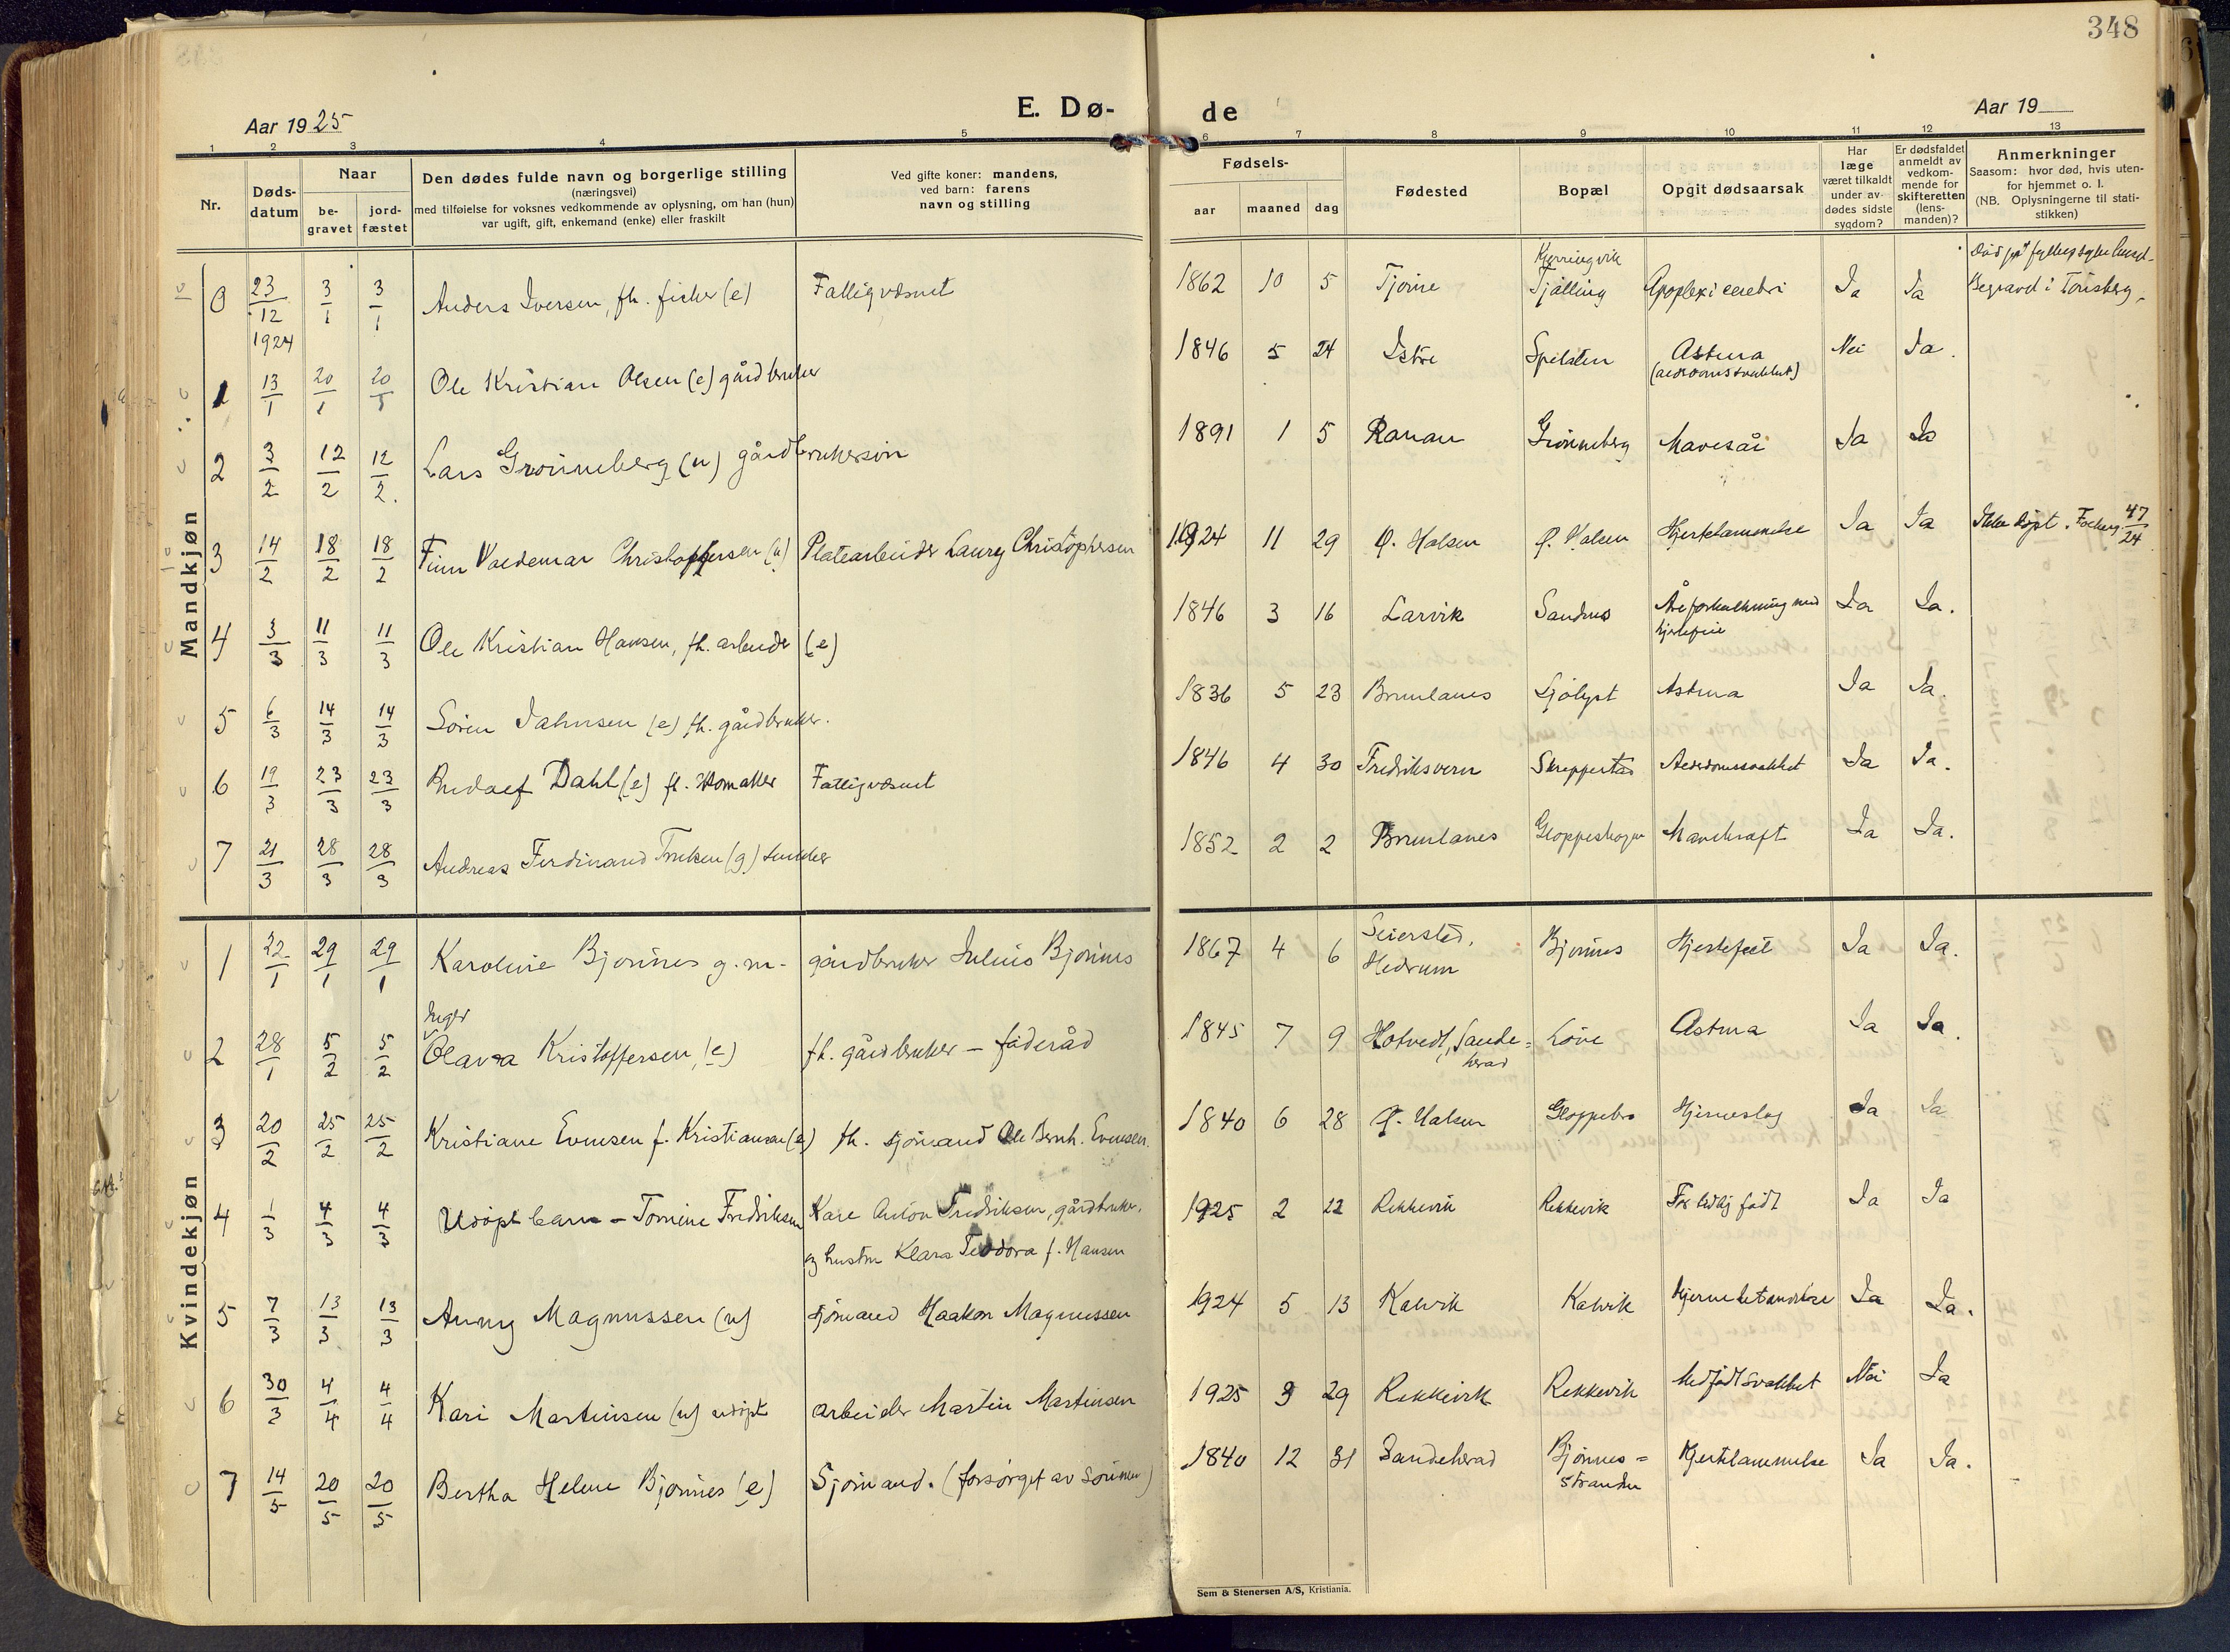 348
Aar 1925
E. Dø-
de
Aar 19
1 2 3 4 5 6 7 8 9 10 11 12 13
Nr.
Døds-
datum
Naar
be-
gravet
jord-
fæstet
Den dødes fulde navn og borgerlige stilling
(næringsvei)
med tilføielse for voksnes vedkommende av oplysning, om han (hun)
var ugift, gift, enkemand (enke) eller fraskilt
Ved gifte koner: mandens,
ved barn: farens
navn og stilling
Fødsels-
aar
maaned
dag
Fødested
Bopæl
Opgit dødsaarsak
Har
læge
været tilkaldt
under av-
dødes sidste
sygdom?
Er dødsfaldet
anmeldt av
vedkom-
mende for
skifteretten
(lens-
manden)?
Anmerkninger
Saasom: hvor død, hvis uten-
for hjemmet o. l.
(NB. Oplysningerne til stati-
stikken)
Mandkjøn
0 23/12 1924 3/1 3/1 Anders Iversen, fh. fisker (e) Fattigvæsnet 1862 10 5 Tjøme Kjerringvik Tjølling Apoplexi cerebri Ja Ja Død på fylkessykehuset. Begravd i Tønsberg.
1 13/1 20/1 20/1 Ole Kristian Olsen (e) gårdbruker 1846 5 24 Istre Spilsten Astma (alderdomssvakhet) Nei Ja.
2 3/2 12/2 12/2. Lars Grønneberg (u) gårdbrukersøn 1891 1 5 Ranau Grønneberg Mavesår Ja Ja
3 14/2 18/2 18/2 Finn Valdemar Christophersen (u) Platearbeider Laury Christophersen 1924 11 29 Ø. Halsen Ø. Halsen Hjertelammelse Ja Ja Ikke døpt. 47/24
4 3/3 11/3 11/3 Ole Kristian Hansen, fh. arbeider (e) 1846 3 16 Larvik Sandnes Åreforkalkning med hjertefeil Ja Ja.
5 6/3 14/3 14/3 Søren Jahnsen (e) fh. gårdbruker. 1836 5 23 Brunlanes Sjølyst Astma Ja Ja.
6 19/3 23/3 23/3 Rudolf Dahl (e) f. skomaker Fattigvæsnet 1846 4 30 Fredriksvern Skreppestad Alderdomssvakhet Ja Ja.
7 21/3 28/3 28/3 Andreas Ferdinand (g) snekker 1852 2 2 Brunlanes Gloppeskogen Mavekræft Ja Ja.
Kvindekjøn
1 22/1 29/1 29/1 Karoline Bjønnes g. m. gårdbruker Julius Bjønnes 1867 4 6 Seiersted, Hedrum Bjønnes Hjertefeil Ja Ja.
2 28/1 5/2 5/2 Inger Olava Kristoffersen, (e) fh. gårdbruker – føderåd 1845 7 9 Hotvedt, Sandeherad Løve Astma Ja Ja.
3 20/2 25/2 25/2 Kristiane Evensen f. Kristiansen (e) fh. sjømand Ole Bernh. Evensen. 1840 6 28 Ø. Halsen Gloppebro Hjerneslag Ja Ja
4 1/3 4/3 4/3 Udøpt barn – Tomine Fredriksen Karl Anton Fredriksen, gårdbruker, og hustru Klara Teodora f. Hansen 1925 2 22 Rekkevik Rekkevik For tidlig født Ja Ja
5 7/3 13/3 13/3 Anny Magnussen (u) sjømand Haakon Magnussen 1924 5 13 Kalvik Kalvik Hjernebetændelse Ja Ja.
6 30/3 4/4 4/4 Kari Martinsen (u) udøpt arbeider Martin Martinsen 1925 3 29 Rekkevik Rekkevik Medfødt svakhet Nei Ja
7 14/5 20/5 20/5 Bertha Helene Bjønnes (e) Sjømand. (forsørget av sønnen) 1840 12 31 Sandeherad Bjønnes-stranden Hjertelammelse Ja Ja.
Sem & Stenersen A/S, Kristiania.